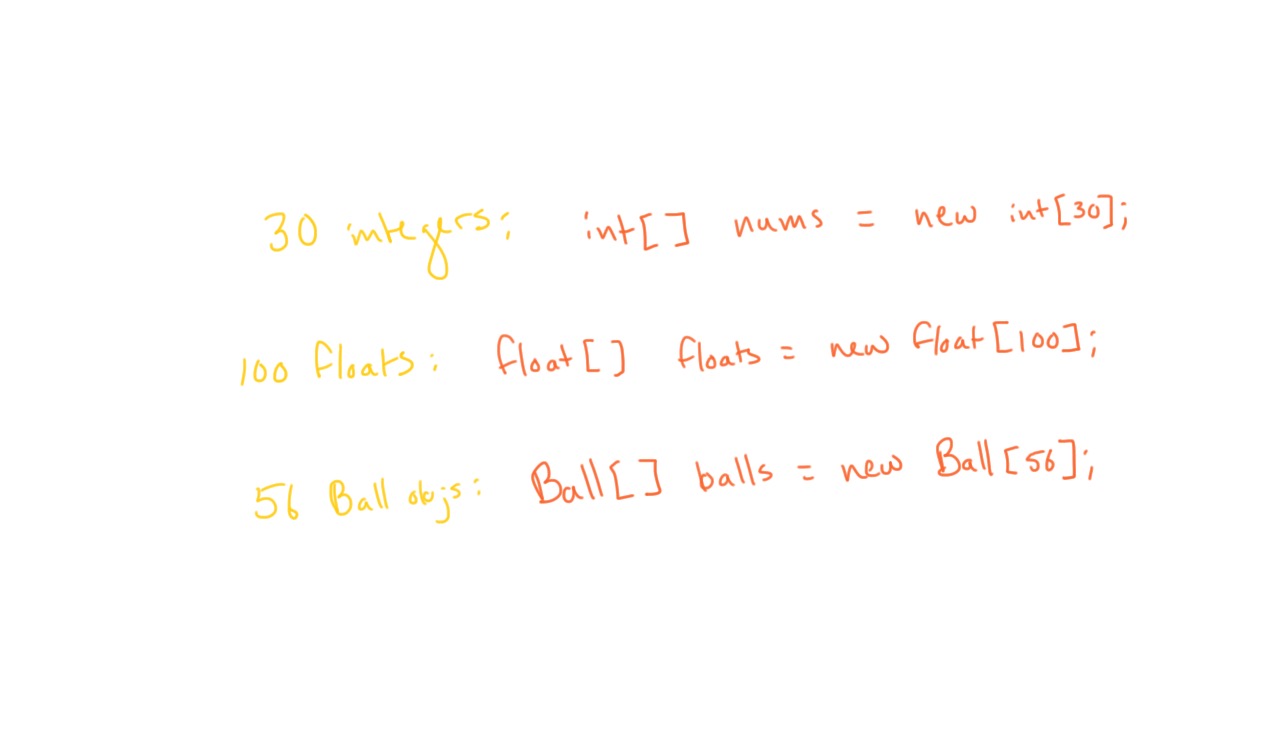 30 integers: int[] nums = new int[30];
100 floats: float[] floats = new float[100];
56 Ball objs: Ball[] balls = new Ball[56];